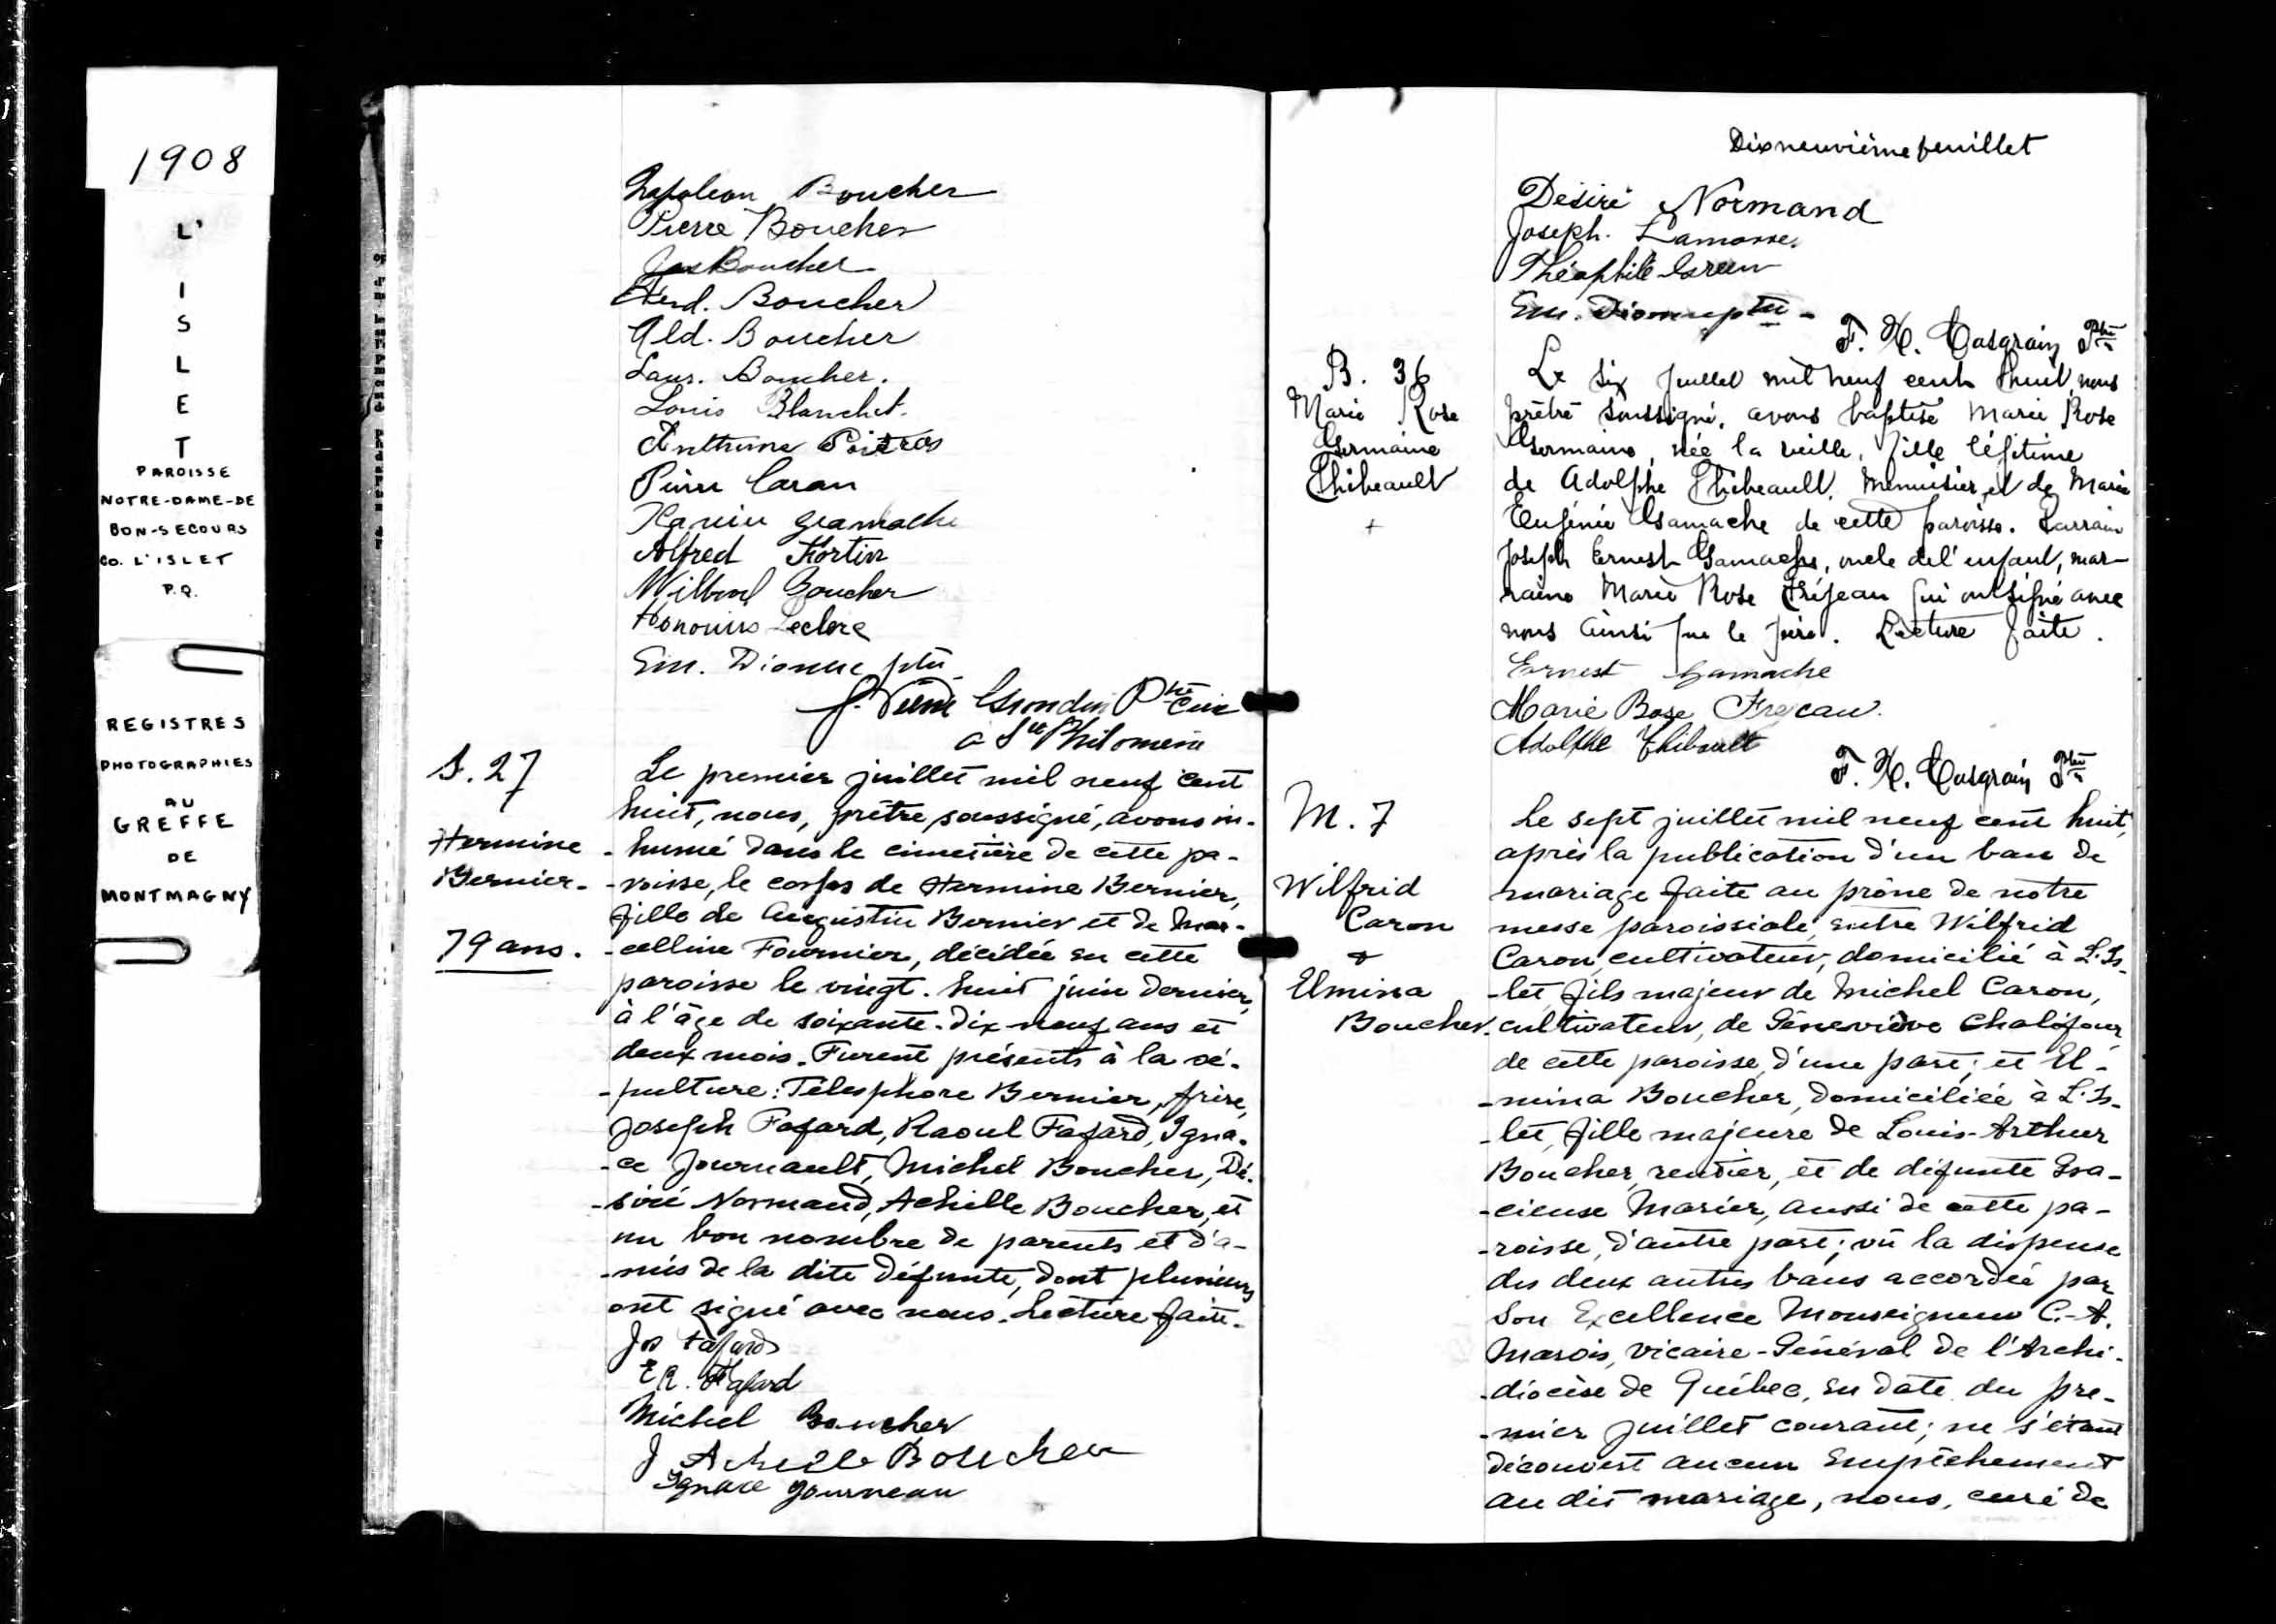 1908
L'
I
S
L
E
T
PAROISSE
NOTRE-DAME-DE
BON-SECOURS
CO. L'ISLET
P.Q.
REGISTRES
PHOTOGRAPHIES
AU
GREFFE
DE
MONTMAGNY
Napoleon Boucher
Pierre Boucher
Jos Boucher
Ferd. Boucher
Ald. Boucher
Laur. Boucher.
Louis Blanchet.
Anthime Poitras
Pierre Caron
Xavier Gamache
Alfred Fortin
Wilbrod Boucher
Honorius Leclerc
Em. Dionne ptre
J. Grondin Ptre Curé
a Ste Philomène
S. 27
Hermine
Bernier.
79 ans.
Le premier juillet mil neuf cent
huit, nous, prêtre, soussigné, avons in-
-humé dans le cimetière de cette pa-
-roisse, le corps de Hermine Bernier,
fille de Augustin Bernier et de Mar-
-celline Fournier, décédée en cette
paroisse le vingt-huit juin dernier,
à l'âge de soixante-dix-neuf ans et
deux mois. Furent présents à la sé-
-pulture: Télesphore Bernier, frère,
Joseph Fafard, Raoul Fafard, Igna-
-ce Journault, Michel Boucher, Dé-
-siré Normand, Achille Boucher, et
un bon nombre de parents et d'a-
-mis de la dite défunte, dont plusieurs
ont signé avec nous. Lecture faite.
Jos Fafard
E R. Fafard
Michel Boucher
J Achille Boucher
Ignace Journeau
Dixneuvième feuillet
Desiré Normand
Joseph. Lamarre.
Théophile
Em. Dionne ptre
F. X. Casgrain Ptre
B. 36
Marie Rose
Germaine
Thibeault
+
Le six juillet mil neuf cent huit, nous
prêtre soussigné, avons baptisé Marie Rose
Germaine, née la veille, fille légitime
de Adolphe Thibeault, menuisier, et de Marie
Eugénie Gamache de cette paroisse. Parrain
Joseph Ernest Gamache, oncle de l'enfant, mar-
raine Marie Rose Fréjeau qui ont signé avec
nous ainsi que le père. Lecture faite.
Ernest Gamache
Marie Rose Frejeau.
Adolphe Thibault
F. X. Casgrain Ptre
M. 7
Wilfrid
Caron
&
Elmina
Boucher.
Le sept juillet mil neuf cent huit,
après la publication d'un ban de
mariage faite au prône de notre
messe paroissiale, entre Wilfrid
Caron, cultivateur, domicilié à L'Is-
-let, fils majeur de Michel Caron,
cultivateur, de Géneviève Chalifour,
de cette paroisse, d'une part; et El-
-mina Boucher, domiciliée à L'Is-
-let, fille majeure de Louis-Arthur
Boucher, rentier, et de défunte Gra-
-cieuse Marier, aussi de cette pa-
-roisse, d'autre part; vû la dispense
des deux autres bans accordée par
Son Excellence Monseigneur C.-A.
Marois, vicaire-Général de l'Archi-
-diocèse de Québec, en date du pre-
-mier juillet courant; ne s'étant
découvert aucun empêchement
au dit mariage, nous, curé de